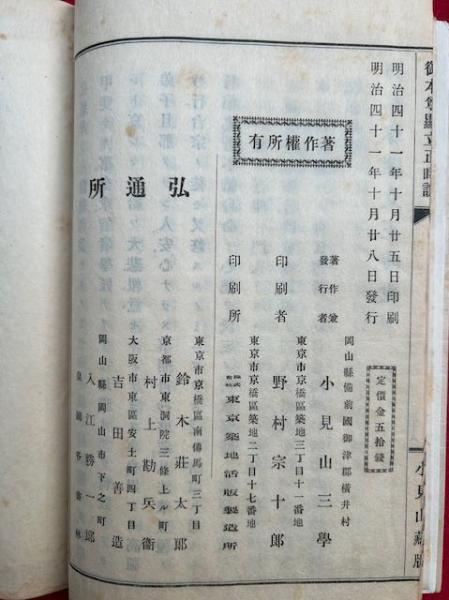 御本尊顯立正時談
小見山藏版
明治四十一年十月廿五日印刷
明治四十一年十月廿八日發行
定價金五拾錢
著作權所有
岡山縣備前國御津郡橫井村
著作兼發行者
小見山三學
東京市京橋區築地三丁目十一番地
印刷者
野村宗十郎
東京市京橋區築地二丁目十七番地
印刷所
東京築地活版製造所
弘通所
東京市京橋區南傳馬町三丁目
鈴木莊太郎
京都市東洞院三條上ル町
村上勘兵衛
大阪市東區安土町四丁目
吉田善造
岡山縣岡山市下之町
入江勝一郎